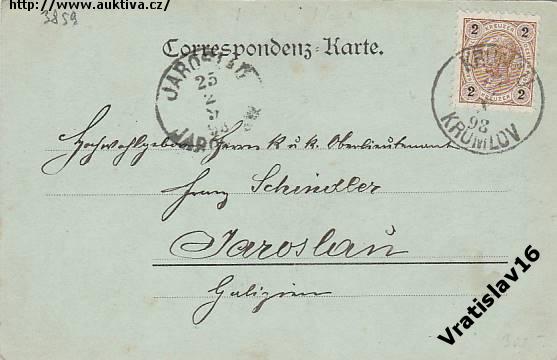 http://www.auktiva.cz/
3859
Correspondenz-Karte.
2 KREUZER 2
2 KREUZER 2
KRUMAU
98
KRUMLOV
JAROSLAU
25
JAROS
Hochwohlgeboren Herrn K u. k. Oberlieutenant
Franz Schindler
Jaroslau
Galizien
Vratislav16